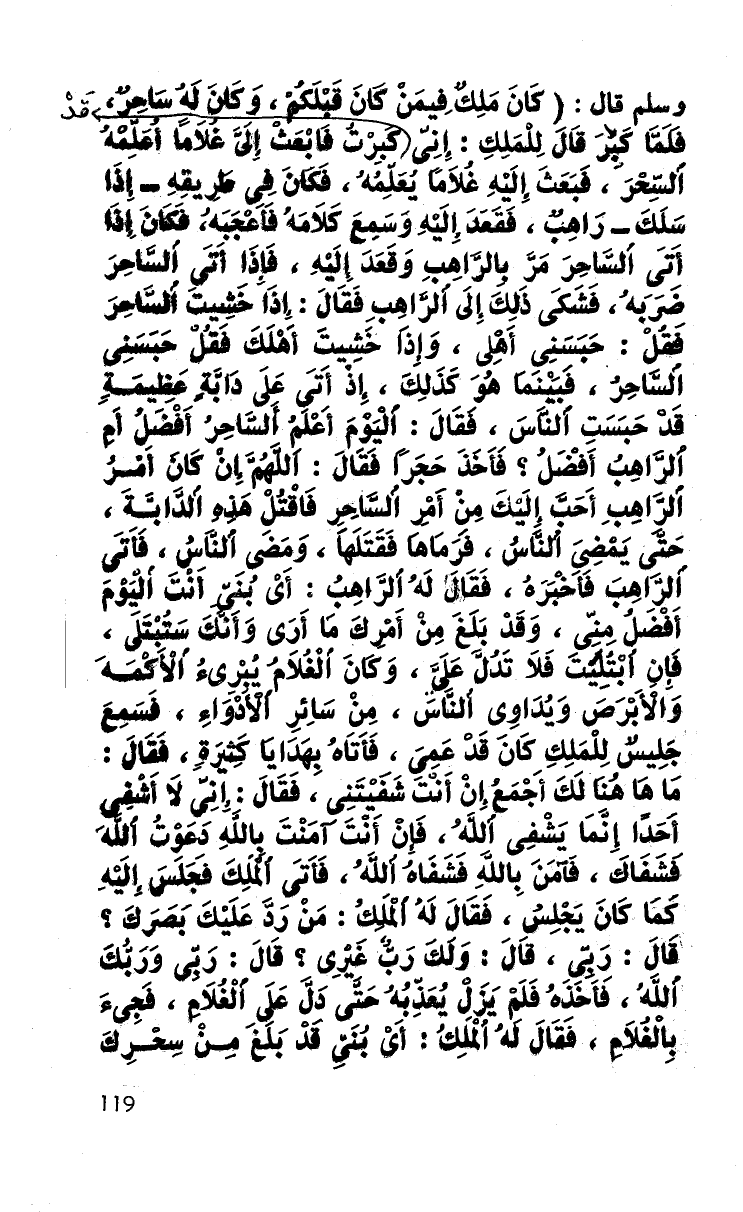 وسلم قال : ( كَانَ مَلِكٌ فِيمَنْ كَانَ قَبْلَكُمْ ، وَكَانَ لَهُ سَاحِرٌ ، قَدْ
فَلَمَّا كَبِرَ قَالَ لِلْمَلِكِ : إِنِّي كَبِرْتُ فَابْعَثْ إِلَيَّ غُلَامًا أُعَلِّمْهُ
ٱلسِّحْرَ ، فَبَعَثَ إِلَيْهِ غُلَامًا يُعَلِّمُهُ ، فَكَانَ فِي طَرِيقِهِ ــ إِذَا
سَلَكَ ــ رَاهِبٌ ، فَقَعَدَ إِلَيْهِ وَسَمِعَ كَلَامَهُ فَأَعْجَبَهُ، فَكَانَ إِذَا
أَتَى ٱلسَّاحِرَ مَرَّ بِالرَّاهِبِ وَقَعَدَ إِلَيْهِ ، فَإِذَا أَتَى ٱلسَّاحِرَ
ضَرَبَهُ ، فَشَكَى ذَلِكَ إِلَى ٱلرَّاهِبِ فَقَالَ : إِذَا خَشِيتَ ٱلسَّاحِرَ
فَقُلْ : حَبَسَنِي أَهْلِى ، وَإِذَا خَشِيتَ أَهْلَكَ فَقُلْ حَبَسَنِي
ٱلسَّاحِرُ ، فَبَيْنَمَا هُوَ كَذَلِكَ ، إِذْ أَتَى عَلَى دَابَّةٍ عَظِيمَـةٍ
قَدْ حَبَسَتِ ٱلنَّاسَ ، فَقَالَ : ٱلْيَوْمَ أَعْلَمُ ٱلسَّاحِرُ أَفْضَلُ أَمِ
ٱلرَّاهِبُ أَفْضَلُ ؟ فَأَخَذَ حَجَرًا فَقَالَ : ٱللَّهُمَّ إِنْ كَانَ أَمْـرُ
ٱلرَّاهِبِ أَحَبَّ إِلَيْكَ مِنْ أَمْرِ ٱلسَّاحِرِ فَاقْتُلْ هَذِهِ ٱلدَّابَّـةَ ،
حَتَّى يَمْضِيَ ٱلنَّاسُ ، فَرَمَاهَا فَقَتَلَهَا ، وَمَضَى ٱلنَّاسُ ، فَأَتَى
ٱلرَّاهِبَ فَأَخْبَرَهُ ، فَقَالَ لَهُ ٱلرَّاهِبُ : أَىْ بُنَيّ أَنْتَ ٱلْيَوْمَ
أَفْضَلُ مِنِّى ، وَقَدْ بَلَغَ مِنْ أَمْرِكَ مَا أَرَى وَأَنَّكَ سَتُبْتَلَى ،
فَإِنِ ٱبْتُلِيتَ فَلَا تَدُلَّ عَلَيَّ ، وَكَانَ ٱلْغُلَامُ يُبْرِىءُ ٱلْأَكْمَـهَ
وَٱلْأَبْرَصَ وَيُدَاوِى ٱلنَّاسَ ، مِنْ سَائِرِ ٱلْأَدْوَاءِ ، فَسَمِعَ
جَلِيسٌ لِلْمَلِكِ كَانَ قَدْ عَمِيَ ، فَأَتَاهُ بِهَدَايَا كَثِيرَةٍ ، فَقَالَ :
مَا هَا هُنَا لَكَ أَجْمَعُ إِنْ أَنْتَ شَفَيْتَنِي ، فَقَالَ : إِنِّي لَا أَشْفِي
أَحَدًا إِنَّمَا يَشْفِى ٱللَّهُ ، فَإِنْ أَنْتَ آمَنْتَ بِاللَّهِ دَعَوْتُ ٱللَّهَ
فَشَفَاكَ ، فَآمَنَ بِاللَّهِ فَشَفَاهُ ٱللَّهُ ، فَأَتَى ٱلْمَلِكَ فَجَلَسَ إِلَيْهِ
كَمَا كَانَ يَجْلِسُ ، فَقَالَ لَهُ ٱلْمَلِكُ : مَنْ رَدَّ عَلَيْكَ بَصَرَكَ ؟
قَالَ : رَبِّى ، قَالَ : وَلَكَ رَبٌّ غَيْرِى ؟ قَالَ : رَبِّي وَرَبُّكَ
ٱللَّهُ ، فَأَخَذَهُ فَلَمْ يَزَلْ يُعَذِّبُهُ حَتَّى دَلَّ عَلَى ٱلْغُلَامِ ، فَجِىءَ
بِالْغُلَامِ ، فَقَالَ لَهُ ٱلْمَلِكُ : أَىْ بُنَيِّ قَدْ بَلَغَ مِـنْ سِحْـرِكَ
119